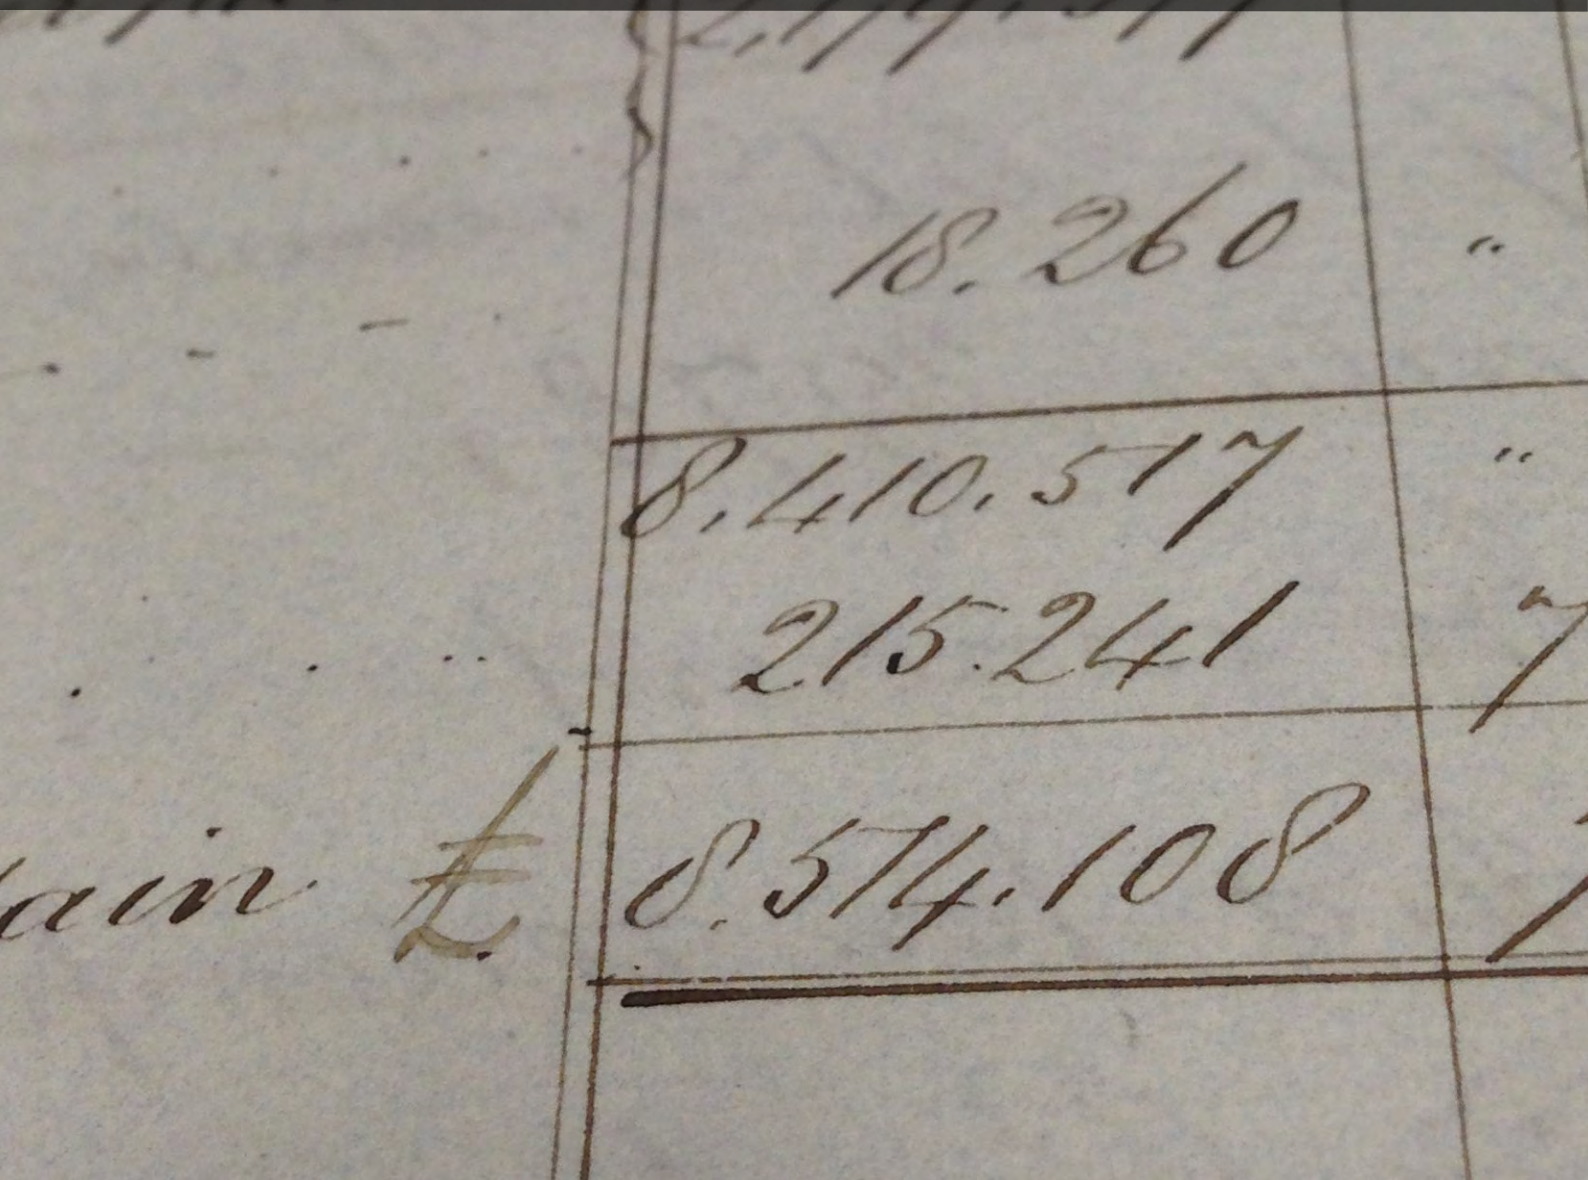 18.260 "
8,410,517 "
215.241 7
ain £ 8.574.108 7